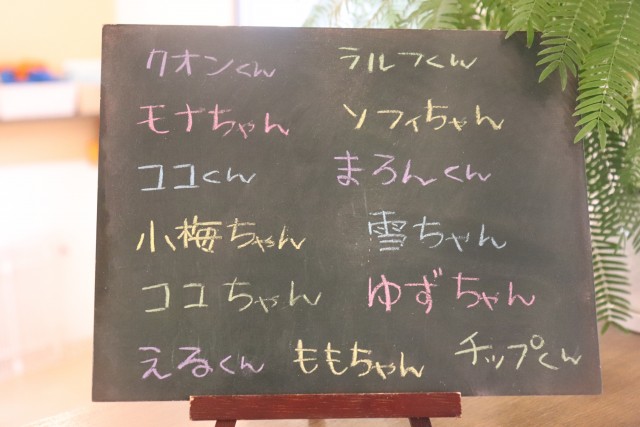 クオンくん ラルフくん
モナちゃん ソフィちゃん
ココくん まろんくん
小梅ちゃん 雪ちゃん
ココちゃん ゆずちゃん
えるくん ももちゃん チップくん